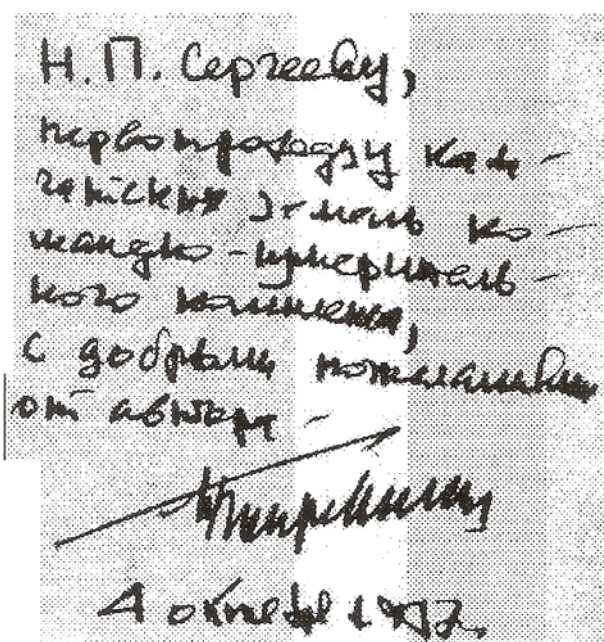 Н.П. Сергееву,
первопроходцу Кам-
чатских земель ко-
мандно-измеритель-
ного комплекса,
с добрыми пожеланиями
от автора -
4 октября